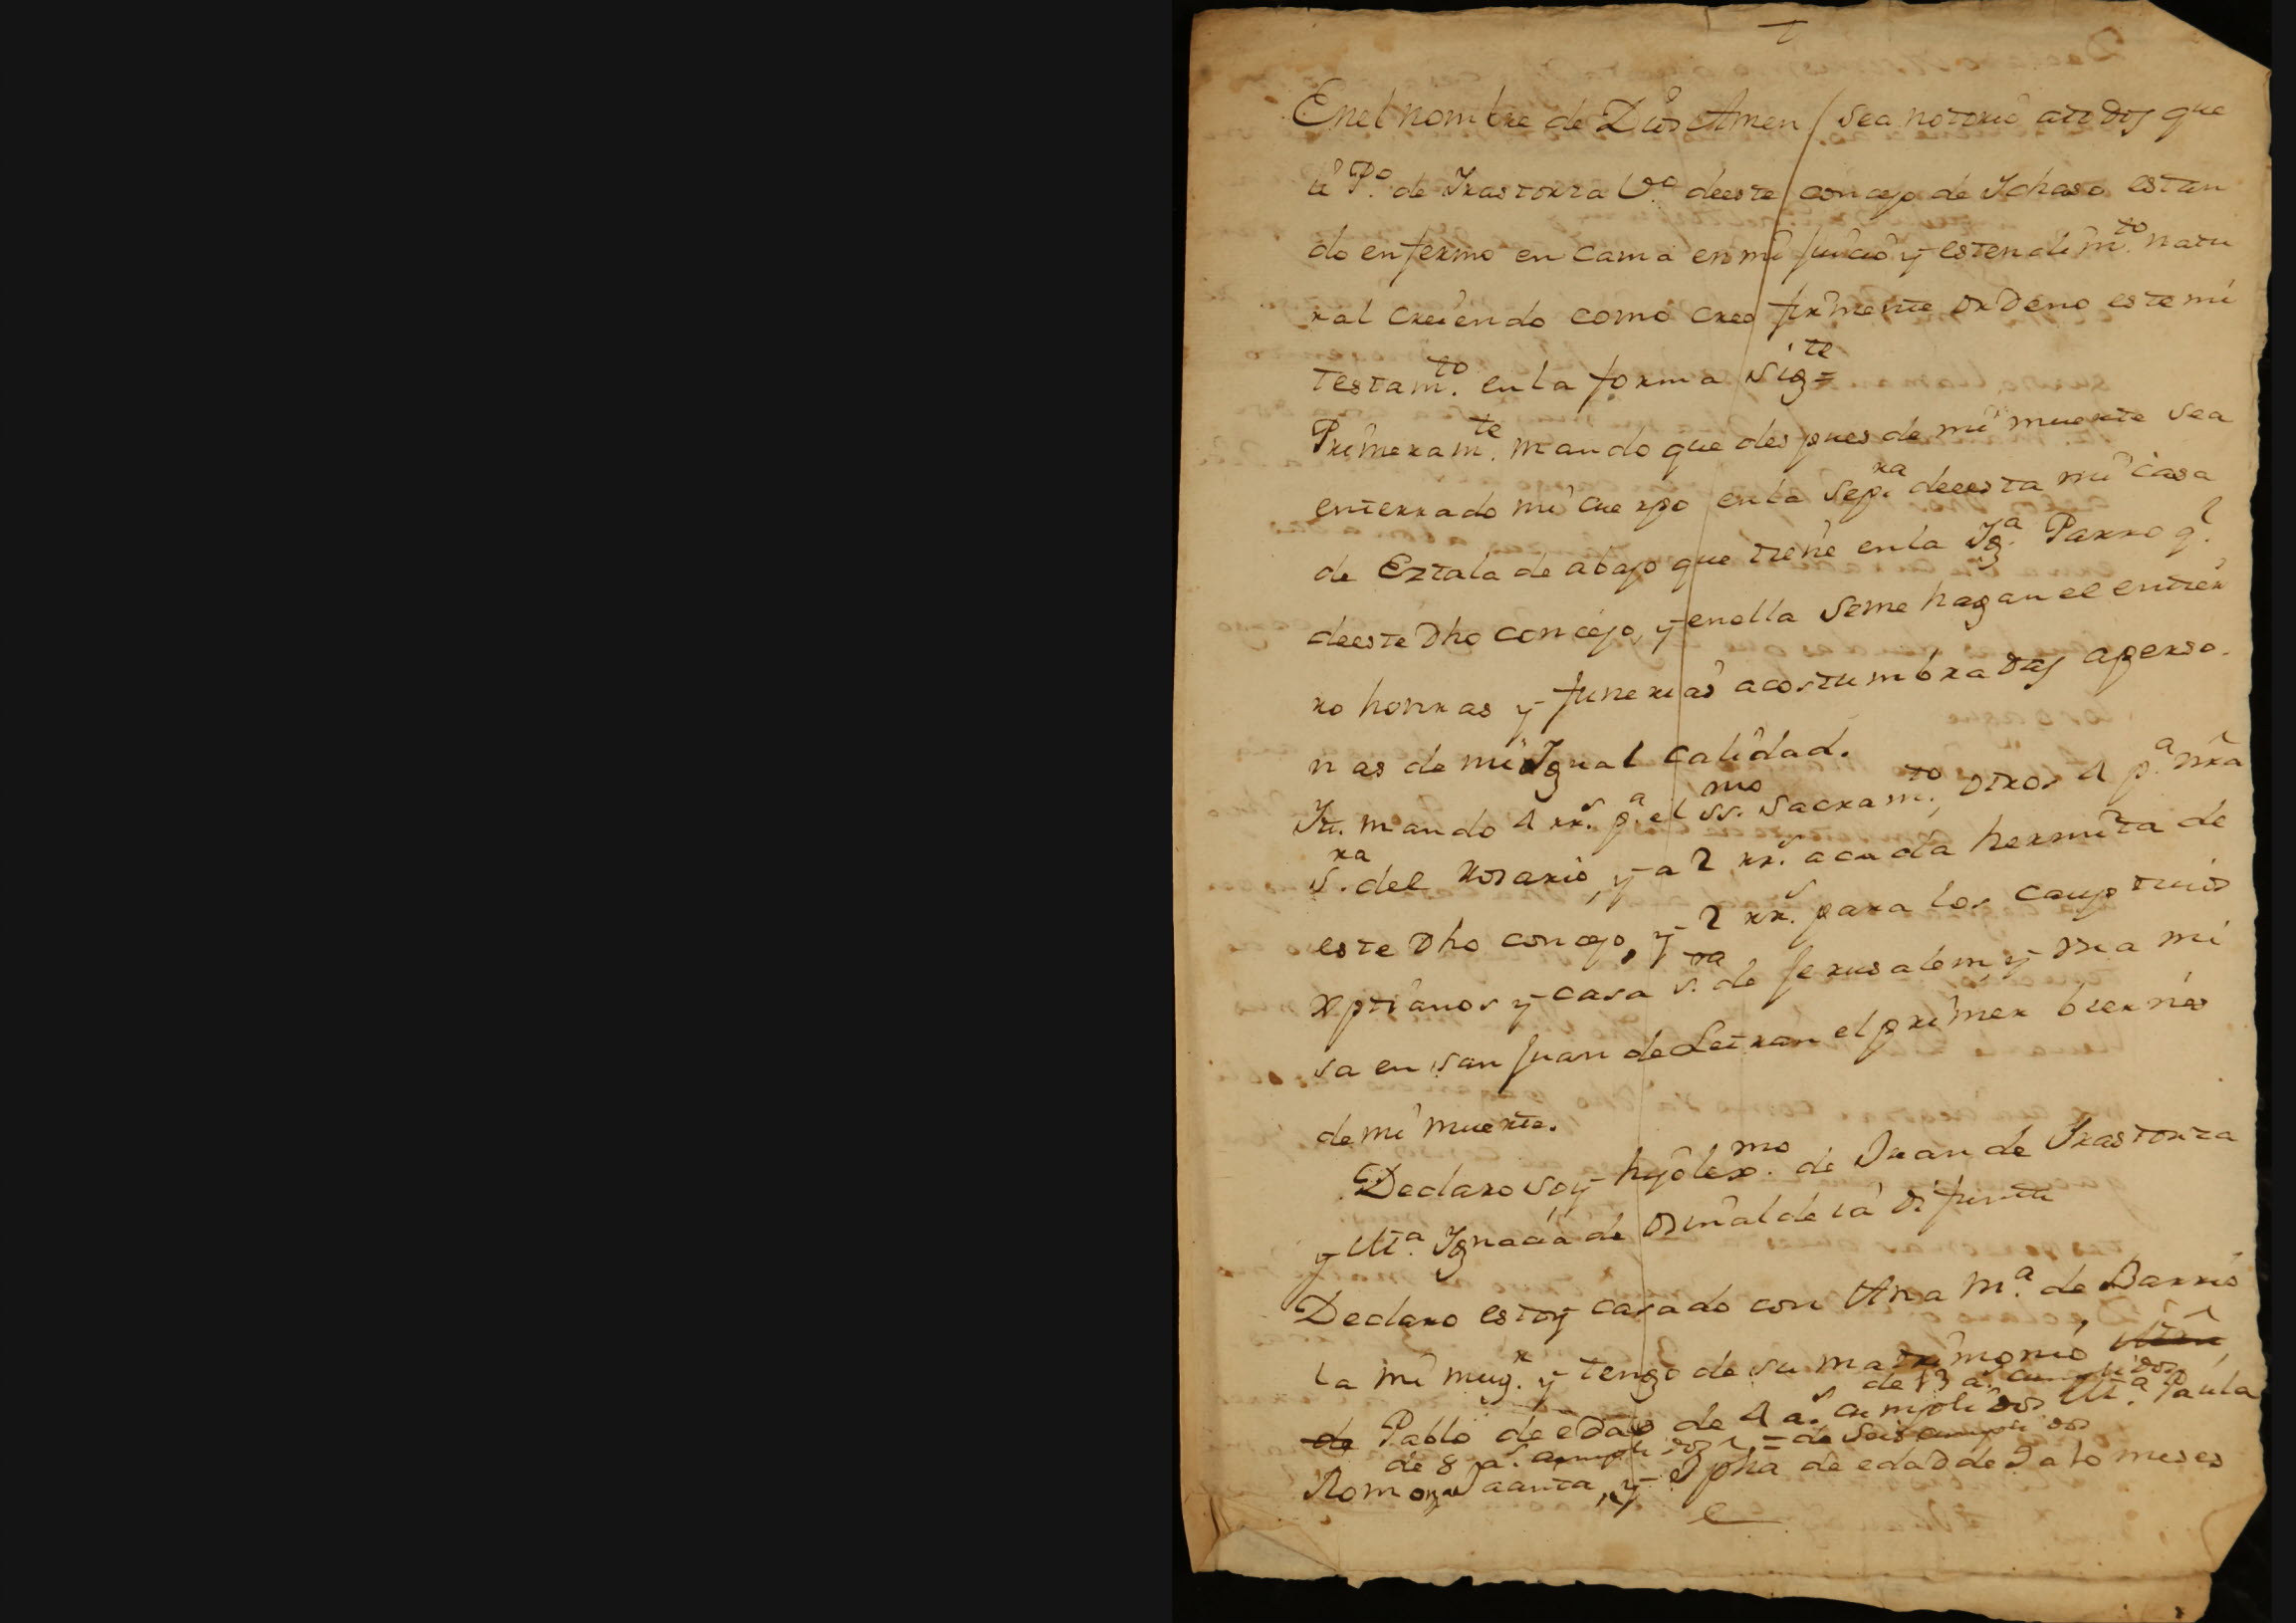 En el nombre de Dios Amen / sea notorio atodos que
io P.o de Irastorza V.o deeste concejo de Ichaso estan
do enfermo en cama en mi juicio y estendim.to natu
ral creiendo como creo firmente ordeno este mi
testam.to en la forma sig.te =
Primeram.te mando que despues de mi muerte sea
enterrado mi cuerpo en la sep.ra deesta mi casa
de Eztala de abajo que tiene en la Ig.a Parroq.l
deeste dho concejo, y enella seme hagan el entier
ro honras y funerias acostumbradas aperso
nas de mi Igual calidad.
It. mando 4 rr.s p.a el ss.mo sacram.to, otros 4 p.a nra
s.ra del Rosario, y a 2 rr.s acada hermita de
este dho concejo, y 2 rr.s para los cauptivos
xptianos y casa s.ta de Jerusalem, y una mi
sa en san Juan de Letran el primer biernes
de mi muerte.
Declaro soy hijo lex.mo de Juan de Irastorza
y M.a Ignacia de difunta
Declaro estoy casado con Ana M.a de Barrio
la mi mug.r y tengo de su matrimonio
de 13 a.s cumplidos
de Pablo de edad de 4 a.s cumplidos M.a Paula
de 8 a.s cumplidos = de seis cumplidos
Romona y Jpha de edad de 9 a 10 meses